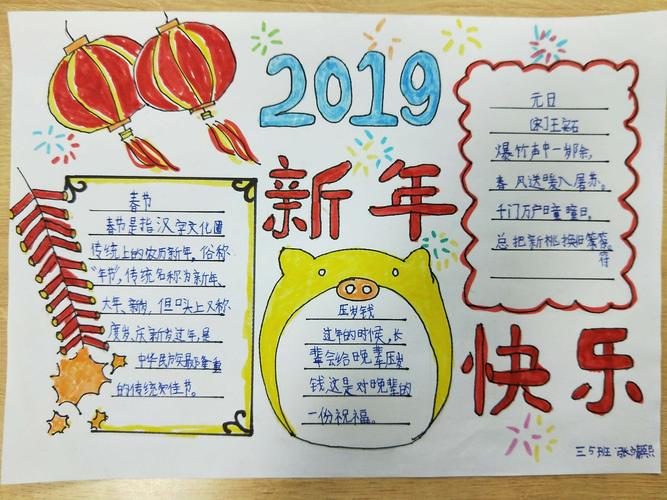 2019
新年
快乐
春节
春节是指汉字文化圈
传统上的农历新年,俗称
“年节”,传统名称为新年、
大年、新岁,但口头上又称
度岁、庆新岁、过年,是
中华民族最隆重
的传统佳节。
压岁钱
过年的时候,长
辈会给晚辈压岁
钱,这是对晚辈的
一份祝福。
元日
[宋]王安石
爆竹声中一岁除,
春风送暖入屠苏。
千门万户曈曈日,
总把新桃换旧符
三5班 张